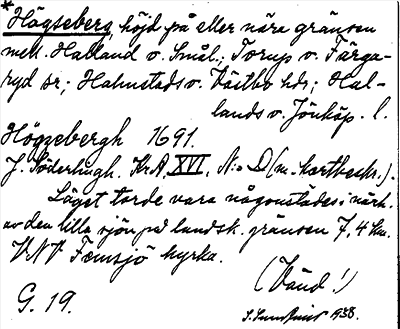 *Högseberg, höjd på eller nära gränsen
mell. Halland o. Smål.; Torup o. Färga-
ryd sr; Halmstads o. Västbo hdr; Hal-
lands o. Jönköp. l.
Högzebergh 1691.
J. Söderlingh. KrA, XVI, N:o D (m. kartbeskr.).
Läget torde vara någonstädes i närh.
av den lilla sjön på landsk. gränsen 7,4 km.
VNV Femsjö kyrka.
(Vänd!)
G. 19.
1938.